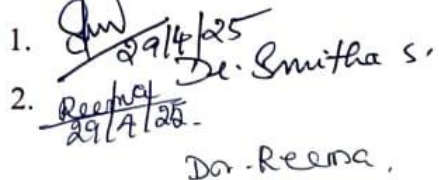 1. 29/4/25
Dr. Smitha S.
2. Reema
29/4/25.
Dr. Reema,